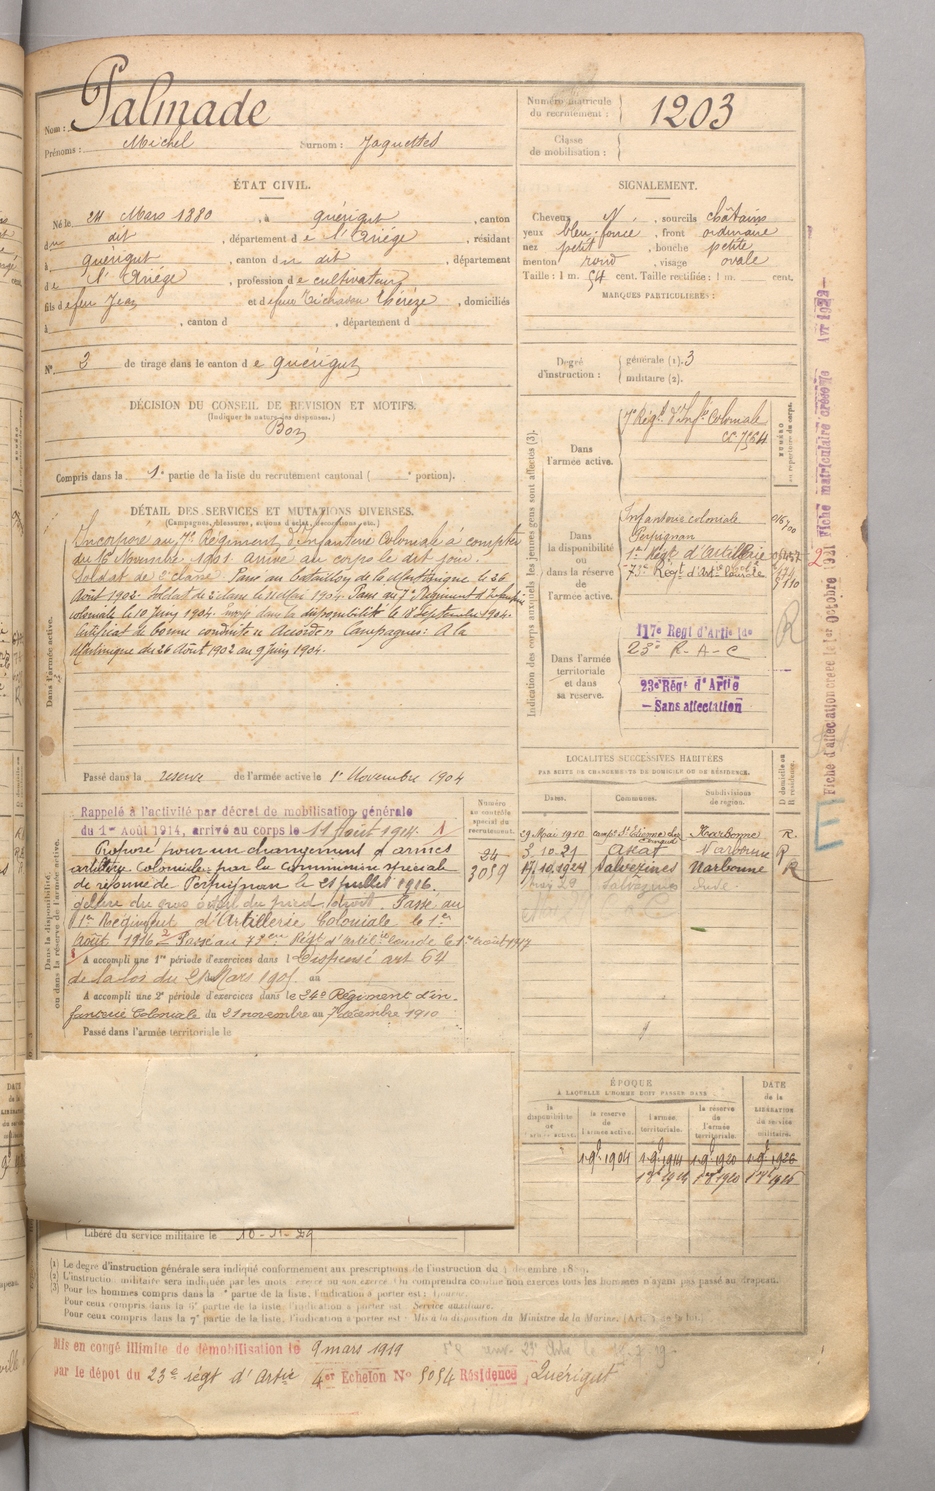 Nom : Palmade
Prénoms : Michel Surnom : Jaquettes
Numéro matricule du recrutement : 1203
Classe de mobilisation :
ÉTAT CIVIL.
Né le 24 Mars 1880, à Quérigut, canton
du dit, département de l'Ariége, résidant
à Quérigut, canton du dit, département
de l'Ariége, profession de cultivateur
fils de feu Jean et de feue Thérèze, domiciliés
à , canton d , département d
N° 3 de tirage dans le canton de Quérigut
SIGNALEMENT.
Cheveux N, sourcils châtains
yeux bleu-foncé, front ordinaire
nez petit, bouche petite
menton rond, visage ovale
Taille : 1 m. 54 cent. Taille rectifiée : 1 m. cent.
MARQUES PARTICULIÈRES :
Degré d'instruction : générale (1). 3
militaire (2).
DÉCISION DU CONSEIL DE REVISION ET MOTIFS.
(Indiquer la nature des dispenses.)
Bon
Compris dans la 1e partie de la liste du recrutement cantonal ( e portion).
DÉTAIL DES SERVICES ET MUTATIONS DIVERSES.
(Campagnes, blessures, actions d'éclat, décorations, etc.)
Dans l'armée active.
Incorporé au 7e Régiment d'Infanterie Coloniale à compter
du 16 Novembre 1901 arrivé au corps le dit jour.
Soldat de 2e classe. Passé au Bataillon de la Martinique le 26
Août 1902. Soldat de 2e classe le 11 Mai 1904. Passé au 7e Régiment d'Infanterie
coloniale le 10 Juin 1904. Envoyé dans la disponibilité le 18 Septembre 1904.
Certificat de bonne conduite "Accordé". Campagnes : A la
Martinique du 26 Août 1902 au 9 juin 1904.
Passé dans la réserve de l'armée active le 1er Novembre 1904
Indication des corps auxquels les jeunes gens sont affectés (3).
NUMÉRO au répertoire du corps.
Dans l'armée active.
7e Régt d'Infie Coloniale
cc 7564
Dans la disponibilité ou dans la réserve de l'armée active.
Infanterie coloniale
Perpignan
1er Régt d'Artillerie
73e Régt d'Artie lourde
Dans l'armée territoriale et dans sa réserve.
117e Regt d'Artie lde
23e R-A-C
23e Régt d'Artie
– Sans affectation
R
Dans la disponibilité ou dans la réserve de l'armée active.
Numéro au contrôle spécial du recrutement.
24
3059
Rappelé à l'activité par décret de mobilisation générale
du 1er Août 1914, arrivé au corps le 11 Août 1914.
Proposé pour un changement d'armes
artillerie Coloniale par la Commission spéciale
de réforme de Perpignan le 21 juillet 1916.
du gros orteil du pied droit. Passé au
1er Régiment d'Artillerie Coloniale le 1er
Août 1916
A accompli une 1re période d'exercices dans l Dispensé art 64
de la loi du 21 Mars 1905. au
A accompli une 2e période d'exercices dans le 24e Régiment d'in-
fanterie Coloniale du 21 novembre au 7 décembre 1910
Passé dans l'armée territoriale le
LOCALITÉS SUCCESSIVES HABITÉES
PAR SUITE DE CHANGEMENTS DE DOMICILE OU DE RÉSIDENCE.
D domicile ou R résidence.
Dates. Communes. Subdivisions de région.
29 Mai 1910 Narbonne R.
3.10.21 Axat Narbonne R
17.10.1924 Salvezines Narbonne R
ÉPOQUE
À LAQUELLE L'HOMME DOIT PASSER DANS
la disponibilité de l'armée active. la réserve de l'armée active. l'armée territoriale. la réserve de l'armée territoriale.
DATE de la LIBÉRATION du service militaire.
1 9b 1904 1 9b 1914 1 9b 1920 1 9b 1926
Libéré du service militaire le 10-11-29
(1) Le degré d'instruction générale sera indiqué conformément aux prescriptions de l'instruction du 4 décembre 1889.
(2) L'instruction militaire sera indiquée par les mots exercé ou non exercé. On comprendra comme non exercés tous les hommes n'ayant pas passé au drapeau.
(3) Pour les hommes compris dans la
Pour ceux compris dans la 6e partie de la liste, l'indication à porter est : Service auxiliaire.
Pour ceux compris dans la 7e partie de la liste, l'indication à porter est : Mis à la disposition du Ministre de la Marine.
Mis en congé illimité de démobilisation le 9 mars 1919
par le dépôt du 23e régt d'Artie 4er Echelon N° 5054 Résidence Quérigut
Fiche d'affectation créée le 1er Octobre 1931 Fiche matriculaire dressée